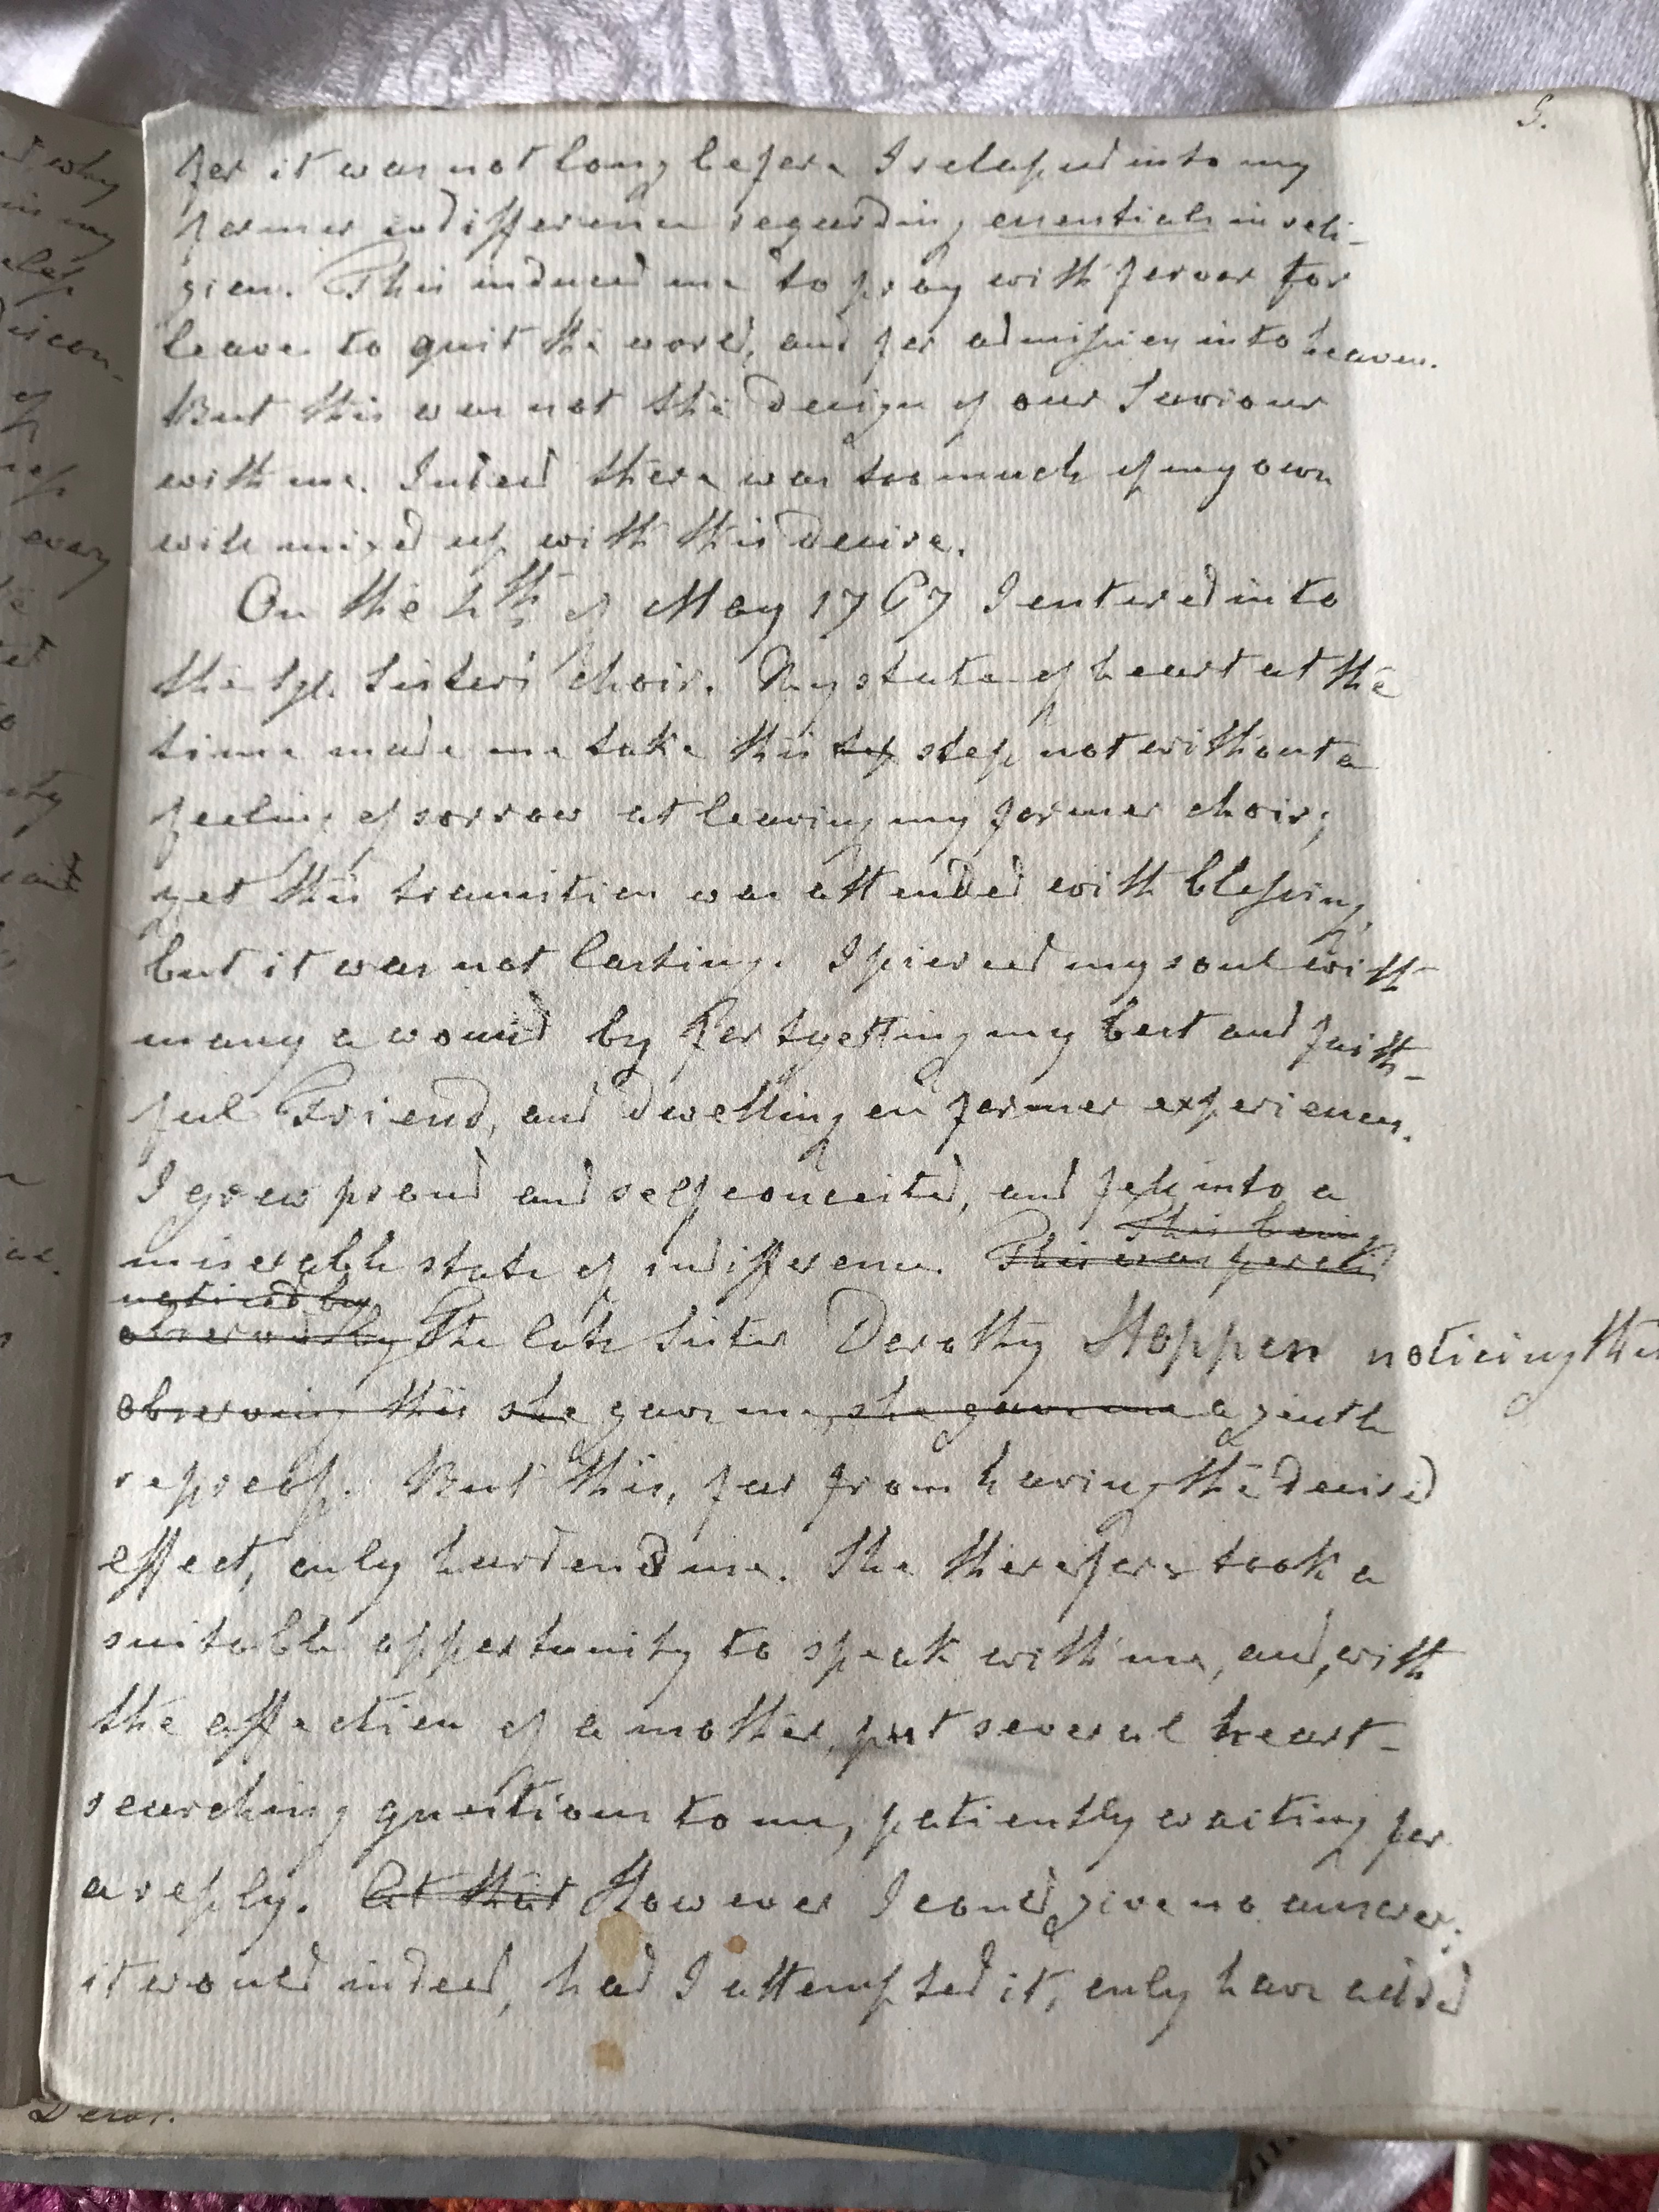 5.
for it was not long before I relapsed into my
former indifference regarding essentials in reli-
gion. This induced me to pray with fervor for
leave to quit the world, and for admission into heaven.
But this was not the design of our Saviour
with me. Indeed there was too much of my own
will mixed up with this desire.
On the 4th of May 1767 I entered into
the sgl. Sisters' choir. My state of heart at the
time made me take this step not without a
feeling of sorrow at leaving my former choir;
yet this transition was attended with blessing,
but it was not lasting. I pierced my soul with
many a wound by forgetting my best and faith-
ful Friend, and dwelling on former experiences.
I grew proud and selfconceited, and fell into a
This being
miserable state of indifference. This was
noticed by
observed by The late Sister Dorothy Hoppen noticing this
observing this she gave me, she gave me a gentle
reproof. But this, far from having the desired
effect, only hardened me. She therefore took a
suitable opportunity to speak with me, and, with
the affection of a mother, put several heart-
searching questions to me, patiently waiting for
a reply. At that However I could give no answer;
it would indeed, had I attempted it, only have added